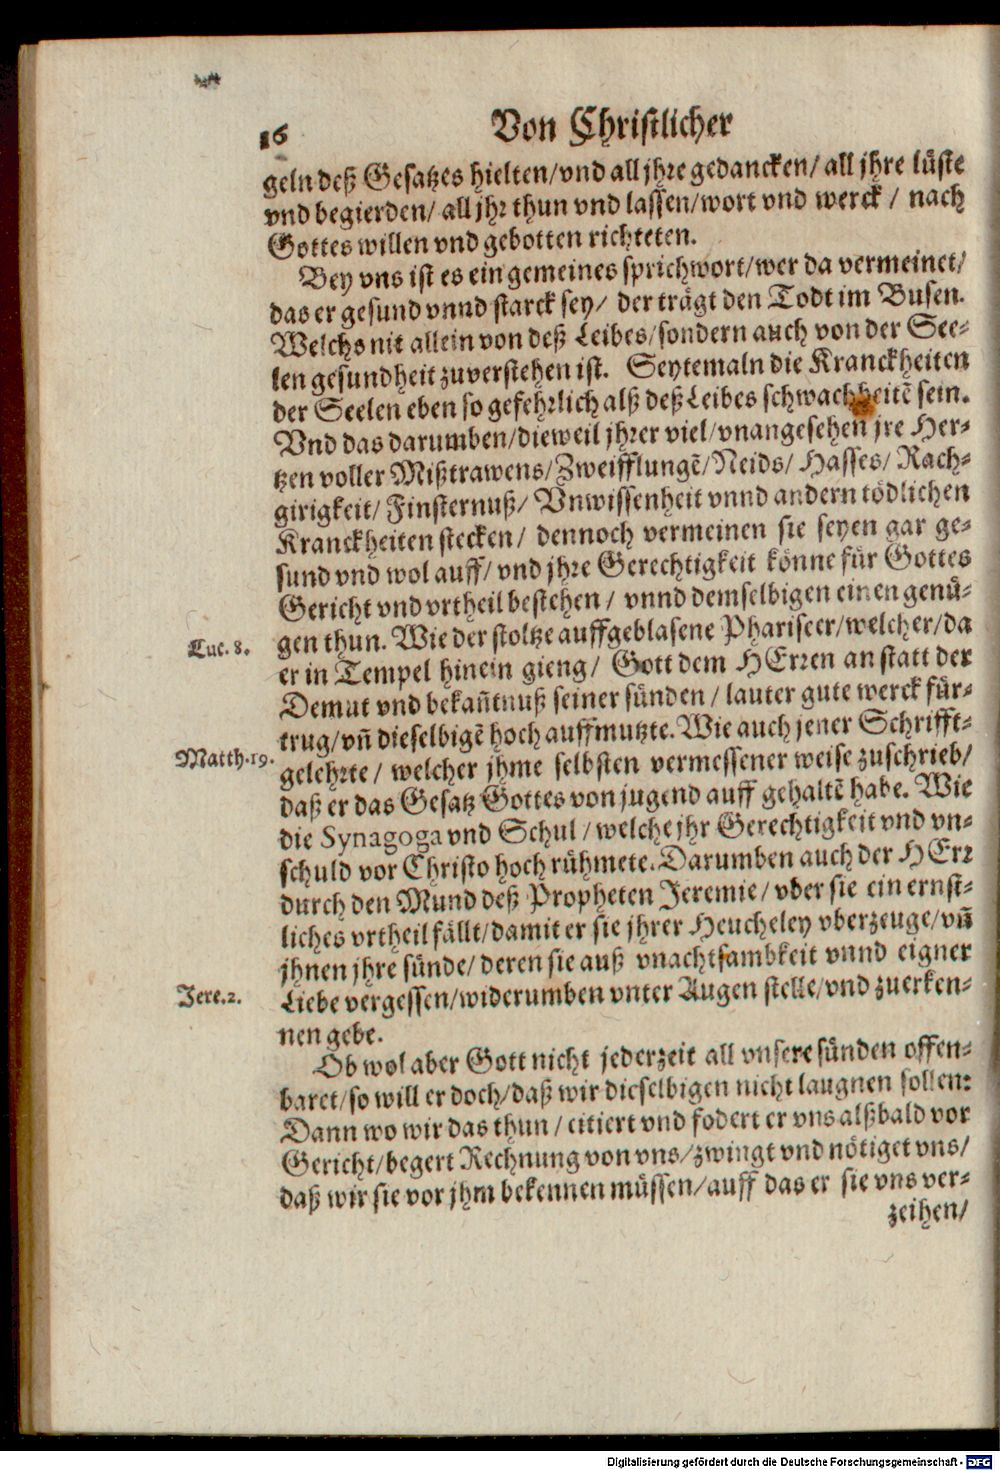 16
Von Christlicher
geln deß Gesatzes hielten/vnd all jhre gedancken/ all jhre lüste
vnd begierden/ all jhr thun vnd lassen/wort vnd werck / nach
Gottes willen vnd gebotten richteten.
Bey vns ist es ein gemeines sprichwort/wer da vermeinet/
das er gesund vnnd starck sey/ der trägt den Todt im Busen.
Welchs nit allein von deß Leibes/sondern auch von der See-
len gesundheit zuverstehen ist. Seytemaln die Kranckheiten
der Seelen eben so gefehrlich alß deß Leibes schwachheitē sein.
Vnd das darumben/dieweil jhrer viel/vnangesehen jre Her-
tzen voller Mißtrawens/Zweifflungē/Neids/ Hasses/ Rach-
girigkeit/ Finsternuß/ Vnwissenheit vnnd andern tödlichen
Kranckheiten stecken/ dennoch vermeinen sie seyen gar ge-
sund vnd wol auff/ vnd jhre Gerechtigkeit könne für Gottes
Gericht vnd vrtheil bestehen / vnnd demselbigen einen genü-
gen thun. Wie der stoltze auffgeblasene Phariseer/welcher/da
Luc. 8.
er in Tempel hinein gieng/ Gott dem HErren an statt der
Demut vnd bekañtnuß seiner sünden / lauter gute werck für-
trug/vñ dieselbigē hoch auffmutzte. Wie auch jener Schrifft-
Matth. 19.
gelehrte/ welcher jhme selbsten vermessener weise zuschrieb/
daß er das Gesatz Gottes von jugend auff gehaltē habe. Wie
die Synagoga vnd Schul / welche jhr Gerechtigkeit vnd vn-
schuld vor Christo hoch rühmete. Darumben auch der HErr
durch den Mund deß Propheten Jeremie/ vber sie ein ernst-
liches vrtheil fällt/damit er sie jhrer Heucheley vberzeuge/vñ
jhnen jhre sünde/ deren sie auß vnachtsambkeit vnnd eigner
Jere. 2.
Liebe vergessen/widerumben vnter Augen stelle/vnd zuerken-
nen gebe.
Ob wol aber Gott nicht jederzeit all vnsere sünden offen-
baret/so will er doch/daß wir dieselbigen nicht laugnen sollen:
Dann wo wir das thun / citiert vnd fodert er vns alßbald vor
Gericht/begert Rechnung von vns/zwingt vnd nötiget vns/
daß wir sie vor jhm bekennen müssen/auff das er sie vns ver-
zeihen/
Digitalisierung gefördert durch die Deutsche Forschungsgemeinschaft - DFG